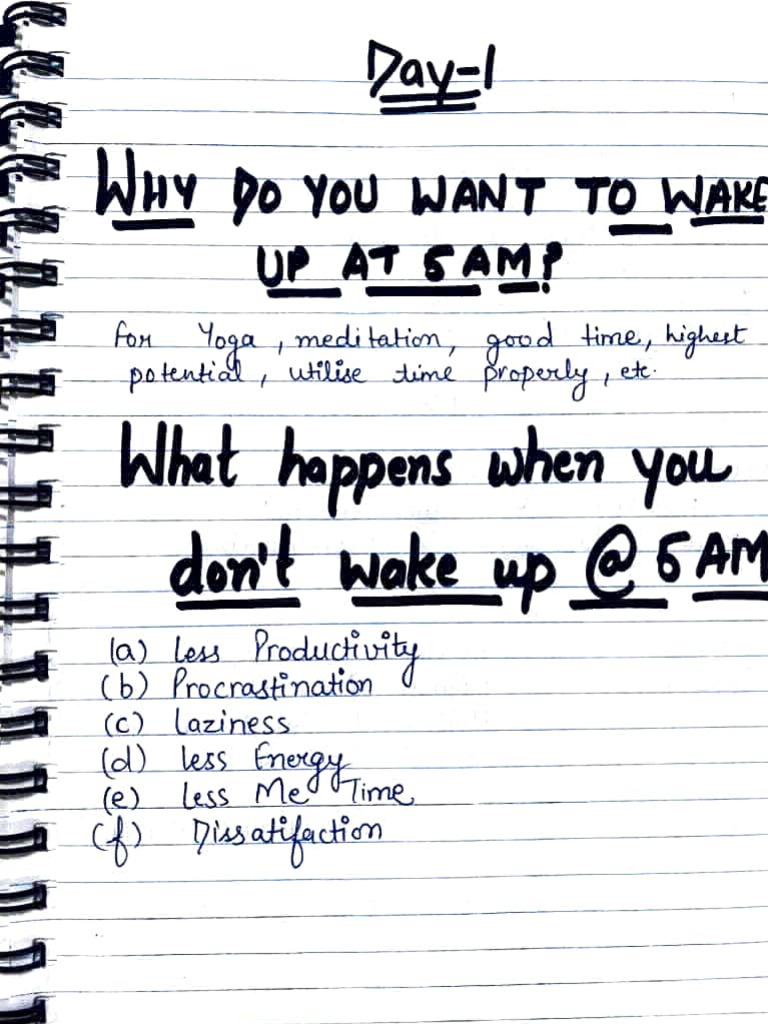 Day-1
WHY DO YOU WANT TO WAKE
UP AT 5 AM?
for Yoga, meditation, good time, highest
potential, utilise time properly, etc.
What happens when you
don't wake up @ 5 AM
(a) less Productivity
(b) Procrastination
(c) Laziness
(d) less Energy
(e) less Me Time
(f) Dissatifaction